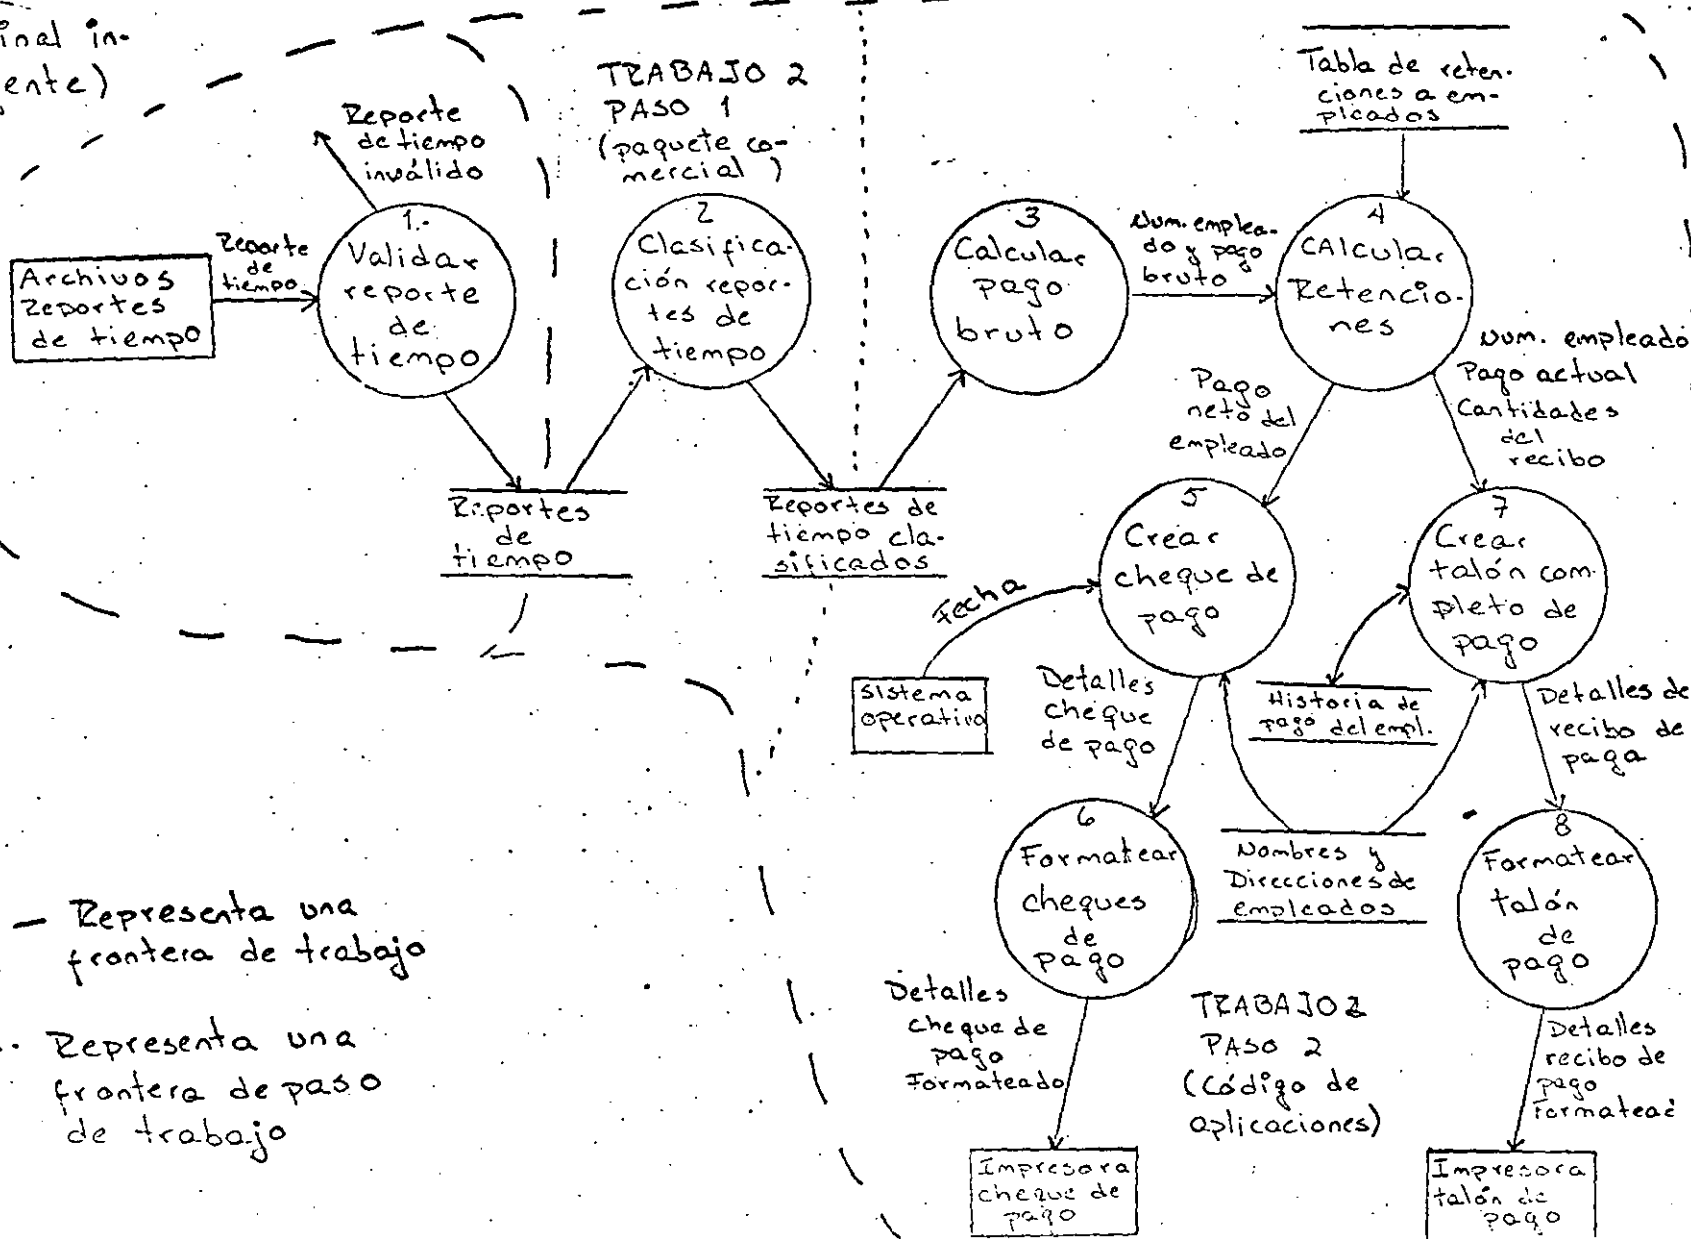 inal in-
ente)
Reporte
de tiempo
inválido
TRABAJO 2
PASO 1
(paquete co-
mercial )
Tabla de reten-
ciones a em-
pleados
Archivos
Reportes
de tiempo
Reporte
de
tiempo
1.-
Validar
reporte
de
tiempo
2
Clasifica-
ción repor-
tes de
tiempo
3
Calcular
pago
bruto
Num. emplea-
do y pago
bruto
4
CAlcular
Retencio-
nes
Pago
neto del
empleado
Num. empleado
Pago actual
Cantidades
del
recibo
Reportes
de
tiempo
Reportes de
tiempo cla-
sificados
5
Crear
cheque de
pago
7
Crear
talón com-
pleto de
pago
Fecha
Sistema
operativo
Detalles
cheque
de pago
Historia de
pago del empl.
Detalles de
recibo de
paga
6
Formatear
cheques
de
pago
Nombres y
Direcciones de
empleados
8
Formatear
talón
de
pago
Representa una
frontera de trabajo
Representa una
frontera de paso
de trabajo
Detalles
cheque de
pago
Formateado
TRABAJO 2
PASO 2
(Código de
aplicaciones)
Detalles
recibo de
pago
Formatead
Impresora
cheque de
pago
Impresora
talón de
pago